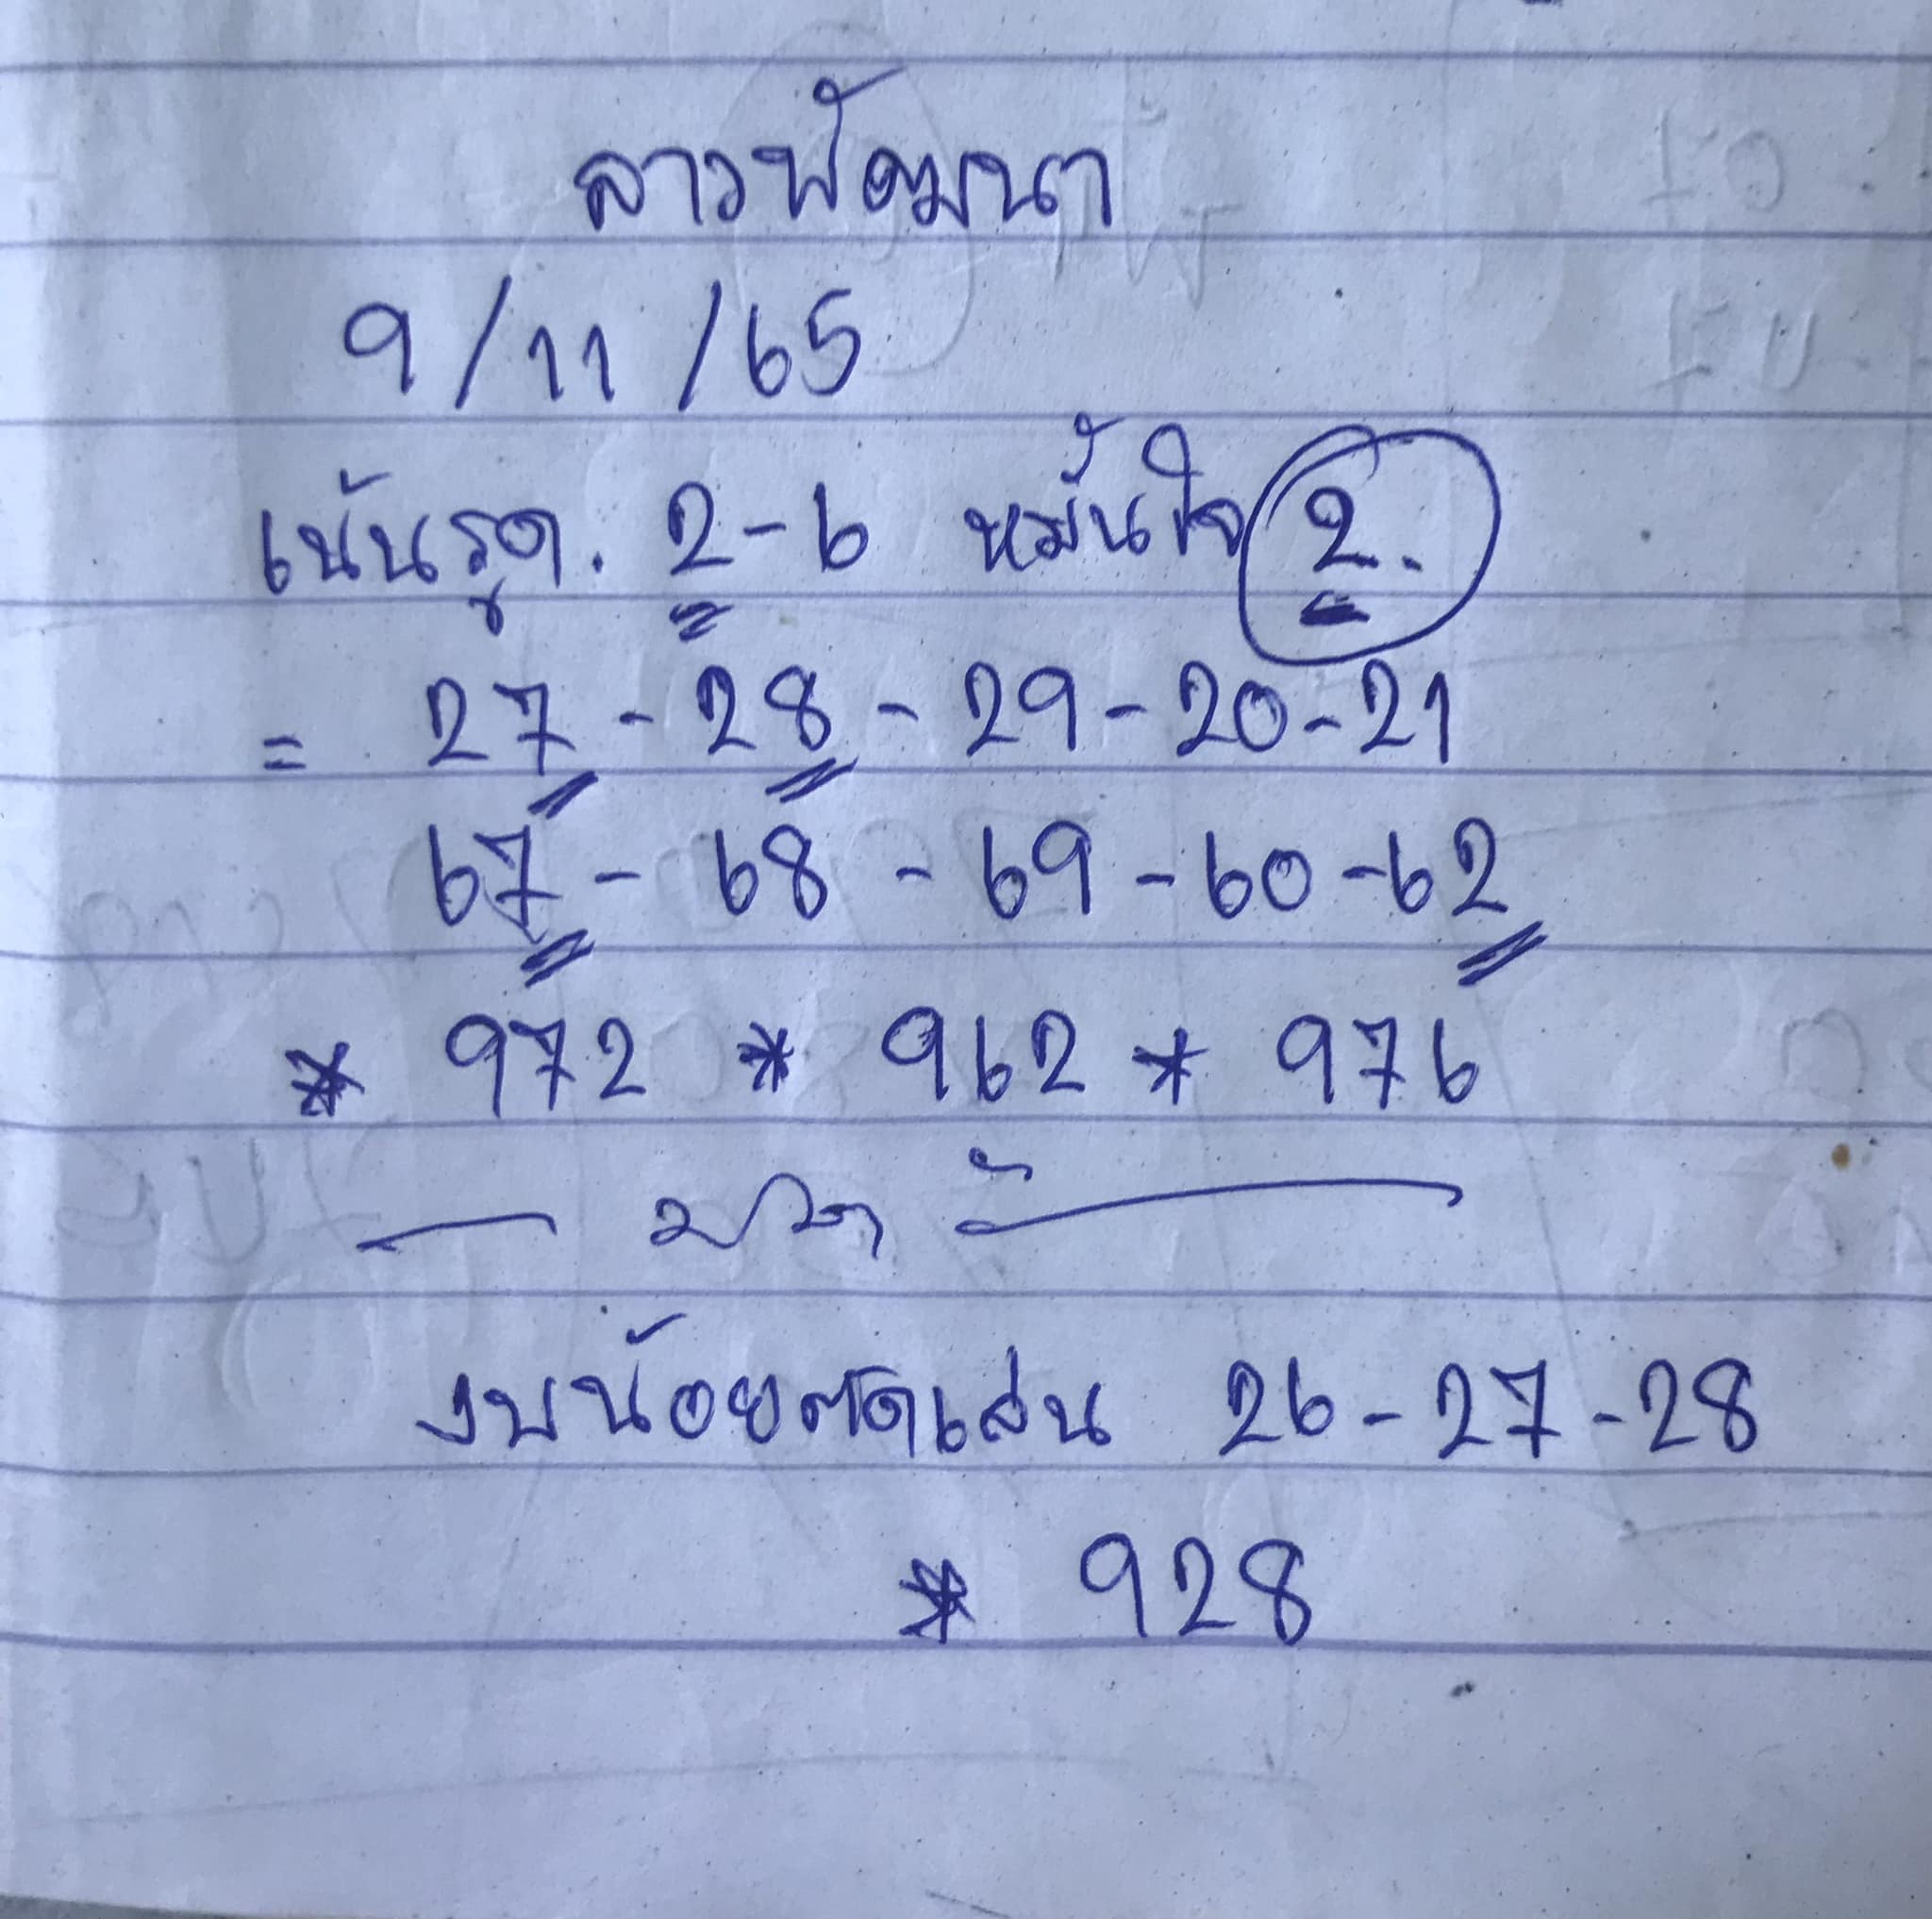 ลาวพัฒนา
9/11/65
เน้นรูด. 2-6 หมั้นใจ 2.
= 27-28-29-20-21
67-68-69-60-62
* 972 * 962 * 976
งบน้อยตัดเล่น 26-27-28
* 928